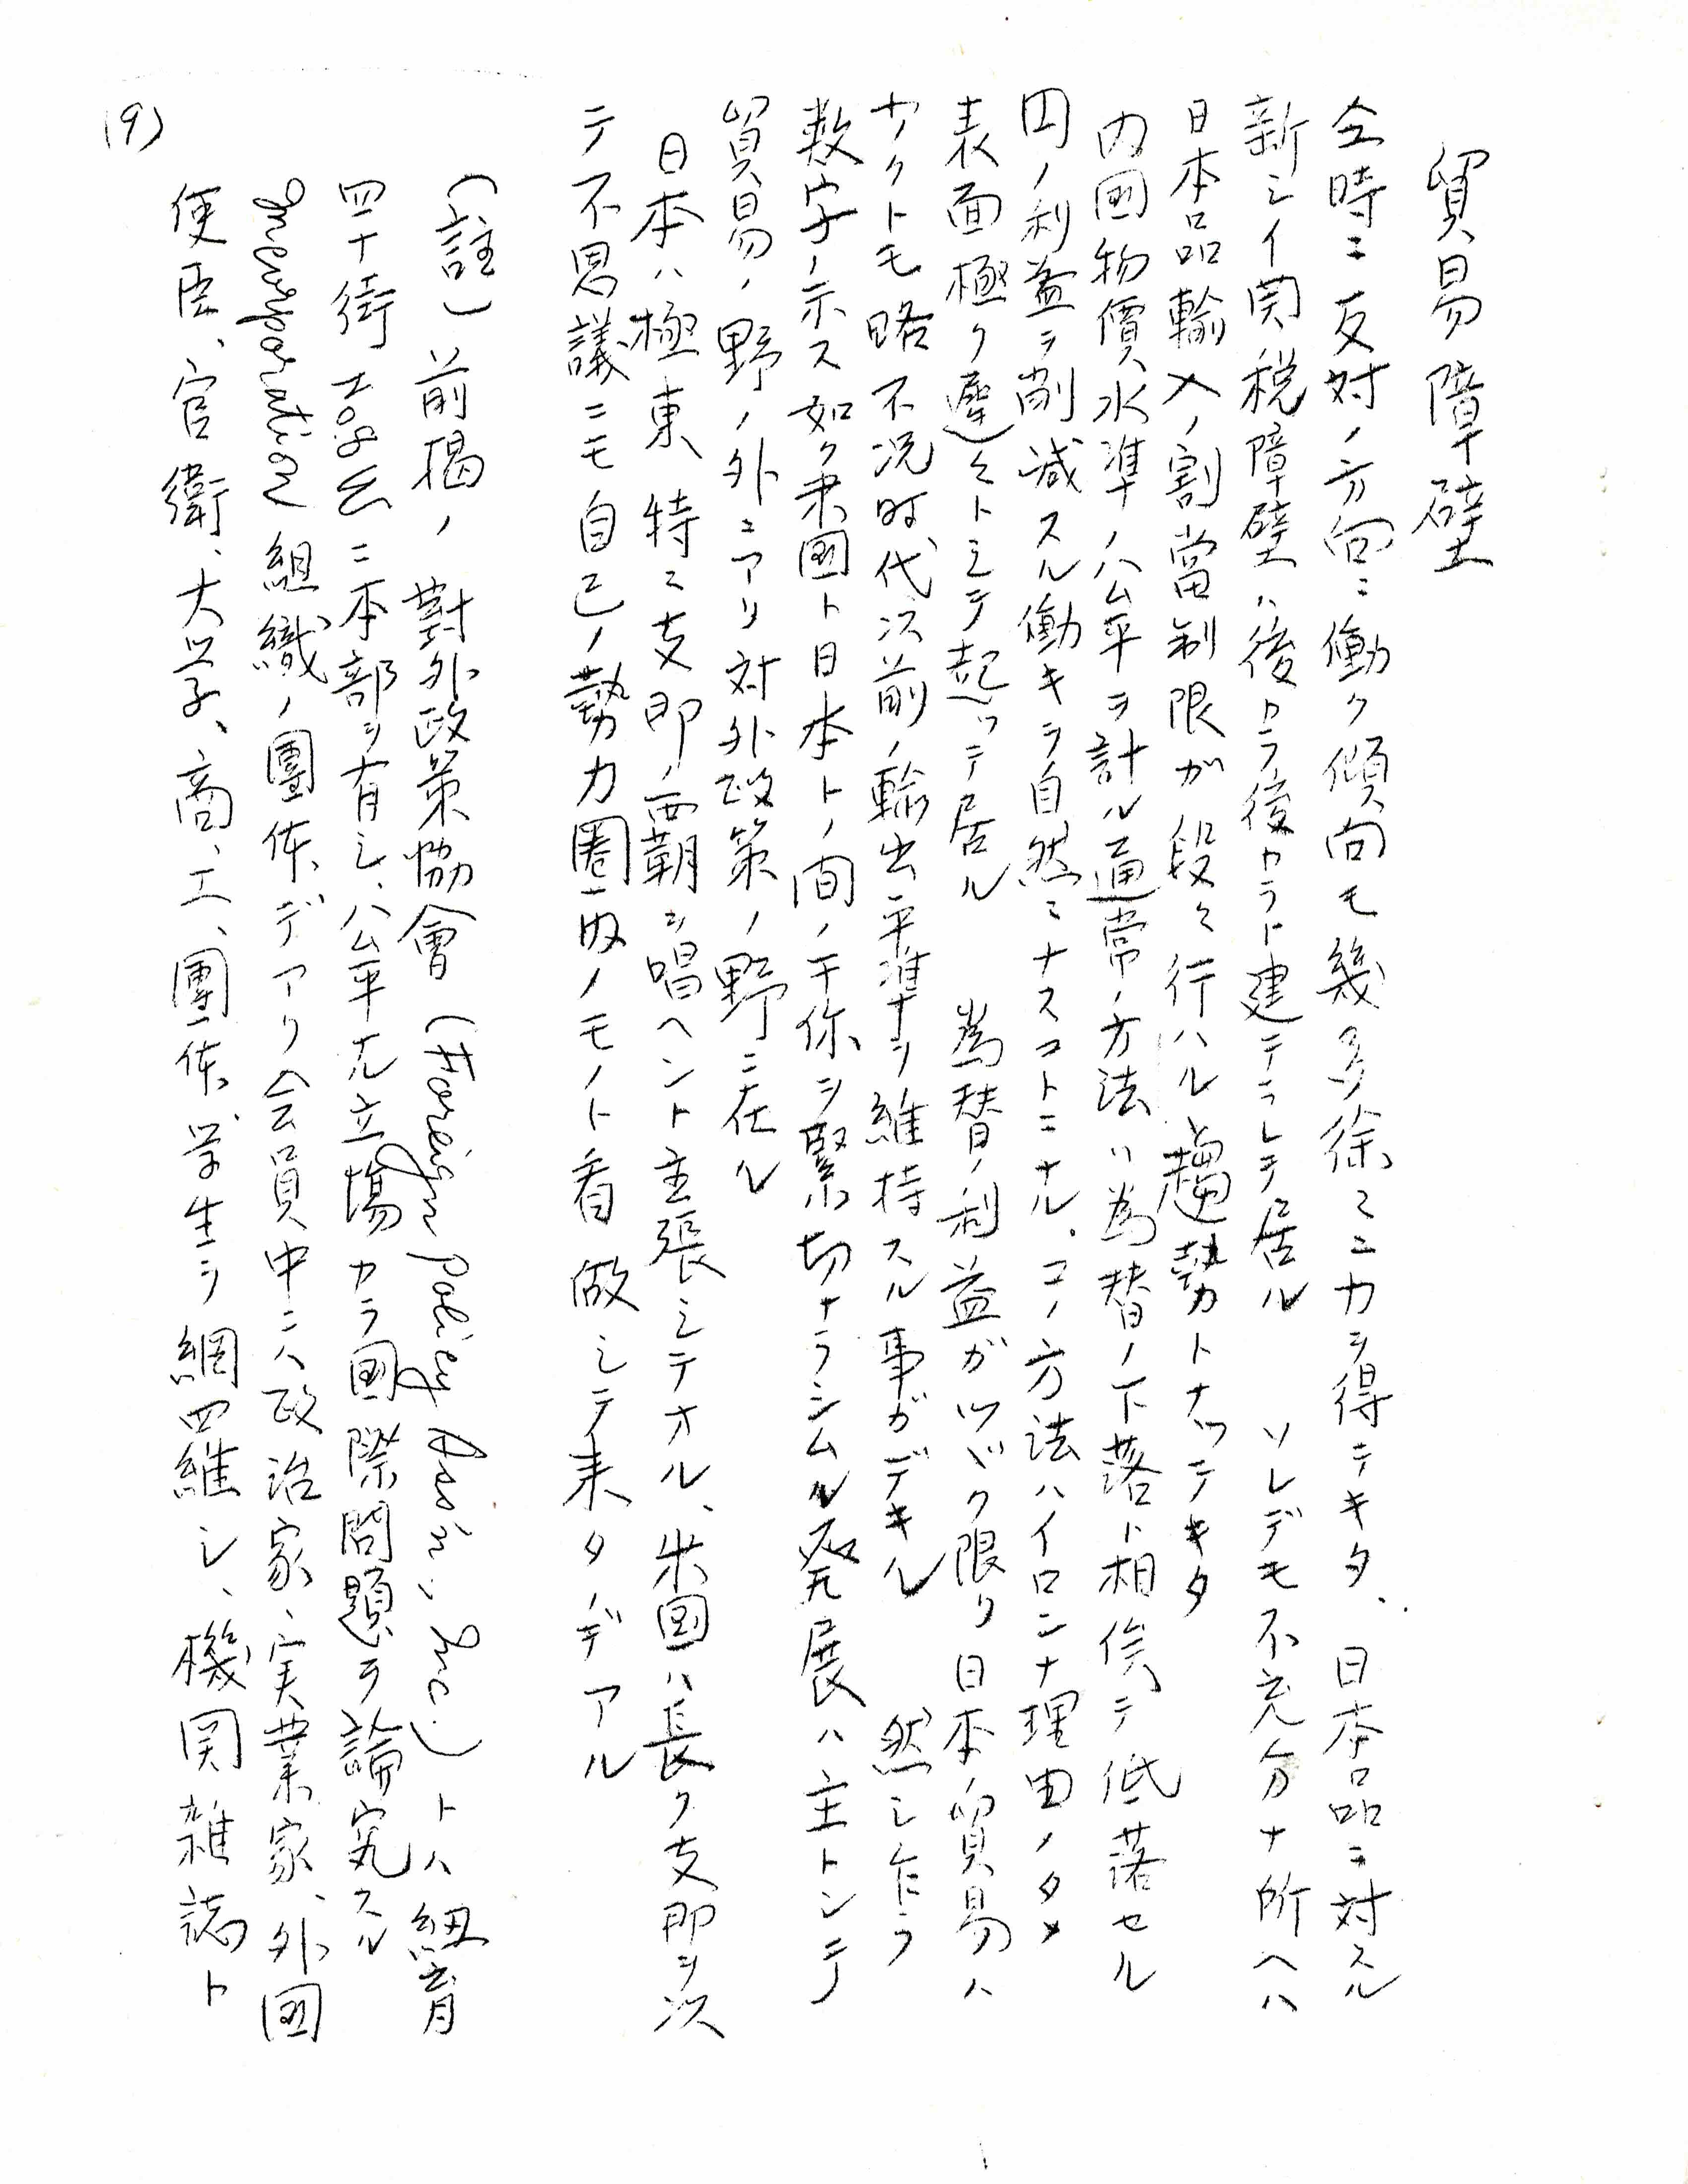 貿易障壁
仝時ニ反対ノ方向ニ働ク傾向モ幾多徐々ニ力ヲ得テキタ、日本品ニ対スル
新シイ関税障壁ハ後カラ後カラト建テラレテ居ル ソレデモ不充分ナ所ヘハ
日本品輸入ノ割當制限ガ段々行ハルヽ趨勢トナツテキタ
内國物價水準ノ公平ヲ計ル通常ノ方法ハ為替ノ下落ト相俟テ低落セル
円ノ利益ヲ削減スル働キヲ自然ニナスコトニナル、コノ方法ハイロンナ理由ノタメ
表面極ク遅々トシテ起ツテ居ル 為替ノ利益ガツヾク限リ日本貿易ハ
少クトモ略不況時代以前ノ輸出平準ヲ維持スル事ガデキル 然シ乍ラ
数字ノ示ス如ク米國ト日本トノ間ノ干係ヲ緊切ナラシムル発展ハ主トシテ
貿易ノ野ノ外ニアリ対外政策ノ野ニ在ル
日本ハ極東特ニ支那ノ覇ヲ唱ヘント主張シテオル、米国ハ長ク支那ヲ以
テ不思議ニモ自己ノ勢力圏内ノモノト看做シテ来タノデアル
(註)前掲ノ對外政策協會(Foreign Policy Ass'n, Inc.)トハ紐育
四十街 ニ本部ヲ有シ、公平ナル立場カラ國際問題ヲ論究スル
Incorporation組織ノ團体デアリ会員中ニハ政治家、実業家、外國
使臣、官衙、大学、商、工、團体、学生ヲ網羅シ、機関雑誌ト
(9)